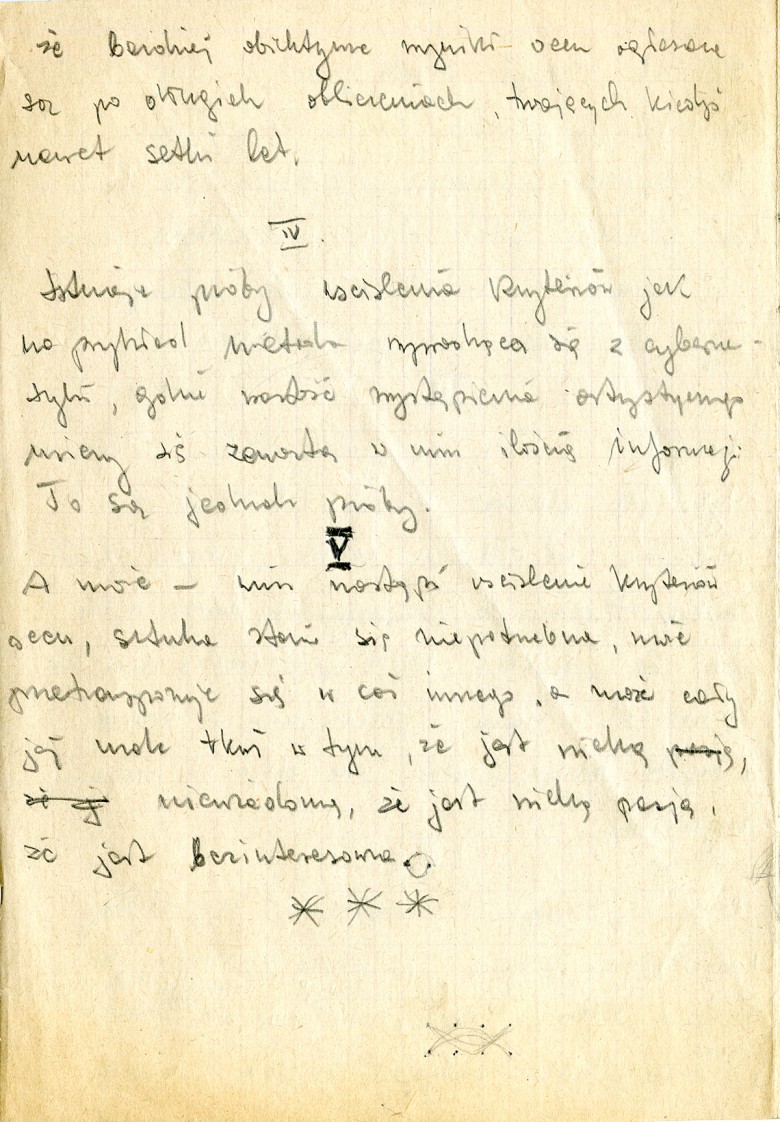 że bardziej obiektywne wyniki ocen ogłaszane
są po długich obliczeniach, trwających kiedyś
nawet setki lat.
IV.
Istnieje próby uściślenia kryteriów jak
na przykład metoda wywodząca się z cyberne-
tyki, gdzie wartość wystąpienia artystycznego
mierzy się zawartą w nim ilością informacji.
To są jednak próby.
V
A może — nim nastąpi uściślenie kryteriów
ocen, sztuka stanie się niepotrzebna, może
przetransponuje się w coś innego, a może cały
jej urok tkwi w tym, że jest wielką pasją,
że j niewiadomą, że jest wielką pasją,
że jest bezinteresowna.
* * *